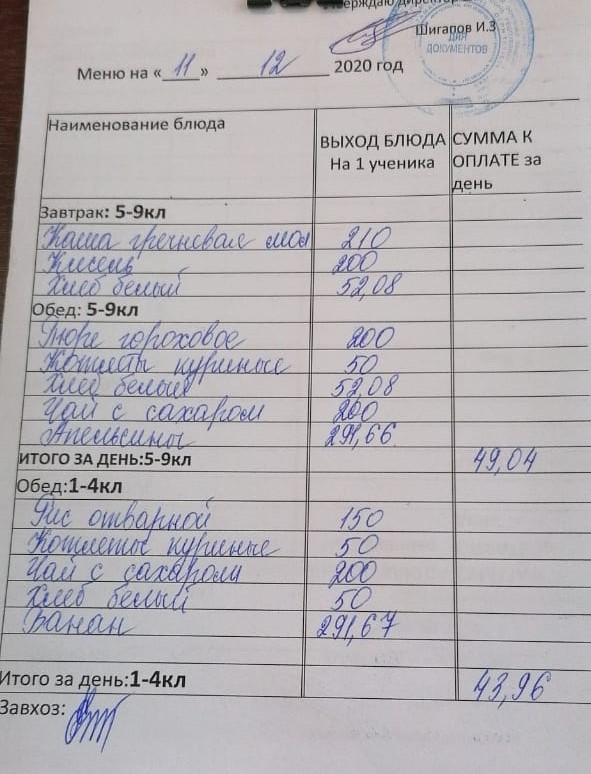 Утверждаю директор
Шигапов И.З
ДЛЯ
ДОКУМЕНТОВ
Меню на «11» 12 2020 год
Наименование блюда ВЫХОД БЛЮДА На 1 ученика СУММА К ОПЛАТЕ за день
Завтрак: 5-9кл
Каша гречневая мол 210
Кисель 200
Хлеб белый 52,08
Обед: 5-9кл
Пюре гороховое 200
Котлеты куриные 50
Хлеб белый 52,08
Чай с сахаром 200
Апельсины 291,66
ИТОГО ЗА ДЕНЬ:5-9кл 49,04
Обед:1-4кл
Рис отварной 150
Котлеты куриные 50
Чай с сахаром 200
Хлеб белый 50
Банан 291,67
Итого за день:1-4кл 43,96
Завхоз: